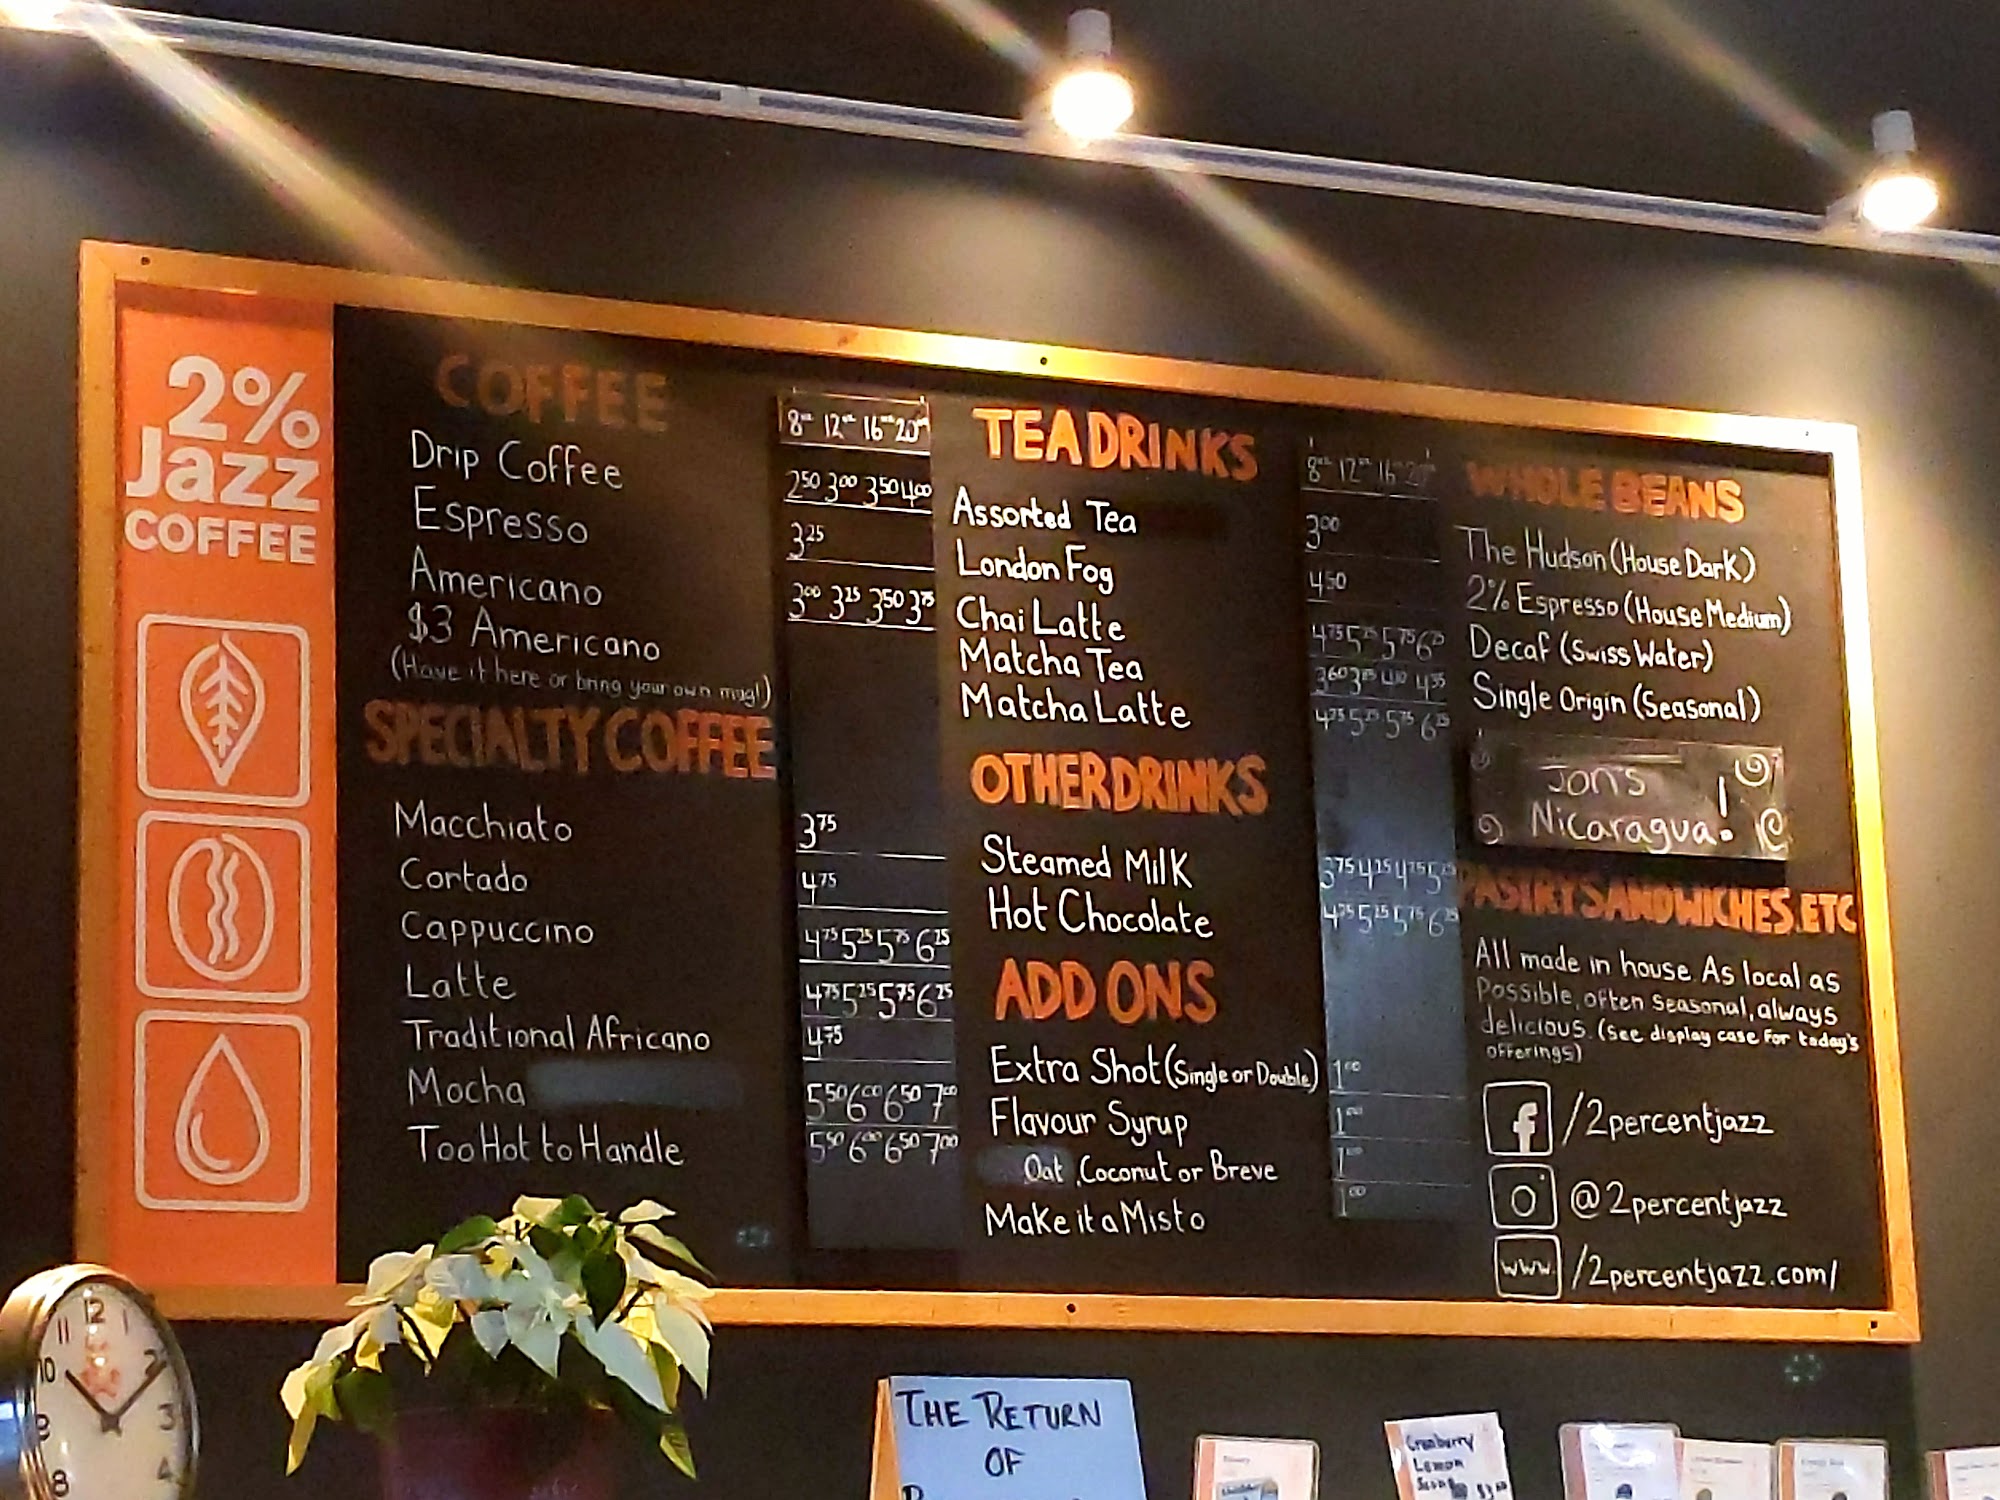 2%
Jazz
COFFEE
COFFEE
8oz 12oz 16oz 20oz
Drip Coffee 2⁵⁰ 3⁰⁰ 3⁵⁰ 4⁰⁰
Espresso 3²⁵
Americano 3⁰⁰ 3²⁵ 3⁵⁰ 3⁷⁵
$3 Americano
(Have it here or bring your own mug!)
SPECIALTY COFFEE
Macchiato 3⁷⁵
Cortado 4⁷⁵
Cappuccino 4⁷⁵ 5²⁵ 5⁷⁵ 6²⁵
Latte 4⁷⁵ 5²⁵ 5⁷⁵ 6²⁵
Traditional Africano 4⁷⁵
Mocha 5⁵⁰ 6⁰⁰ 6⁵⁰ 7⁰⁰
Too Hot to Handle 5⁵⁰ 6⁰⁰ 6⁵⁰ 7⁰⁰
TEA DRINKS
8oz 12oz 16oz 20oz
Assorted Tea 3⁰⁰
London Fog 4⁵⁰
Chai Latte 4⁷⁵ 5²⁵ 5⁷⁵ 6²⁵
Matcha Tea 3⁶⁰ 3⁸⁵ 4¹⁰ 4³⁵
Matcha Latte 4⁷⁵ 5²⁵ 5⁷⁵ 6²⁵
OTHER DRINKS
Steamed Milk 3⁷⁵ 4²⁵ 4⁷⁵ 5²⁵
Hot Chocolate 4⁷⁵ 5²⁵ 5⁷⁵ 6²⁵
ADD ONS
Extra Shot (Single or Double) 1⁰⁰
Flavour Syrup 1⁰⁰
Oat, Coconut or Breve 1⁰⁰
Make it a Misto 1⁰⁰
WHOLE BEANS
The Hudson (House Dark)
2% Espresso (House Medium)
Decaf (Swiss Water)
Single Origin (Seasonal)
Jon's
Nicaragua!
PASTRY SANDWICHES, ETC
All made in house. As local as
Possible, often seasonal, always
delicious. (See display case for today's
offerings)
f /2percentjazz
@2percentjazz
www. /2percentjazz.com/
12
11 1
10 2
9 3
8 4
THE RETURN
OF
Cranberry
Lemon